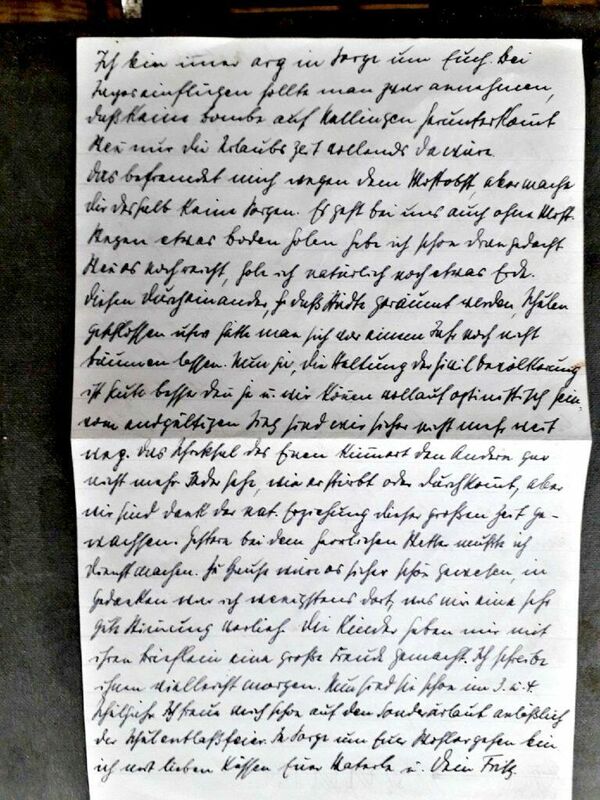 Ich bin immer arg in Sorge um Euch. Bei
einflügen sollte man zwar annehmen,
daß keine Bombe auf herunterkommt
nur die Urlaubszeit vollends da wäre.
Das befremdet mich wegen dem Mostobst, aber mache
Dir deshalb keine Sorgen. Es geht bei uns auch ohne Most.
Wegen etwas Boden holen habe ich schon dran gedacht
noch reicht, hole ich natürlich noch etwas Erde.
Diesen Durcheinander, so daß Städte geräumt werden, Schulen
geschlossen usw hätte man sich vor einem Jahr noch nicht
träumen lassen. Nun ja, die Haltung der Zivilbevölkerung
ist heute besser den je u. wir können vollauf optimistisch sein,
vom endgültigen Sieg sind wir sicher nicht mehr weit
weg. Das Schicksal des Einen kümmert den Andern gar
nicht mehr. Jeder sehe, wie er stirbt oder durchkommt, aber
wir sind dank der nat. Erziehung dieser großen Zeit ge-
wachsen. Gestern bei dem herrlichen Wetter mußte ich
Dienst machen. Zu Hause wäre es sicher schön gewesen, in
Gedanken war ich wenigstens dort, was mir eine sehr
gute Stimmung verlieh. Die Kinder haben mir mit
ihren Brieflein eine große Freude gemacht. Ich schreibe
ihnen vielleicht morgen. Nun sind sie schon im 3. u. 4.
Schuljahr. Ich freue mich schon auf den Sonderurlaub anläßlich
der Schulentlaßfeier. In Sorge um Euer Wohlergehen bin
ich mit lieben Küssen Euer Vaterle u. Dein Fritz.